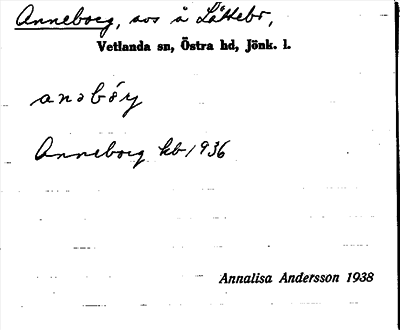 Anneborg, sos å Låttebo,
Vetlanda sn, Östra hd, Jönk. l.
anəbórj
Anneborg kb 1936
Annalisa Andersson 1938